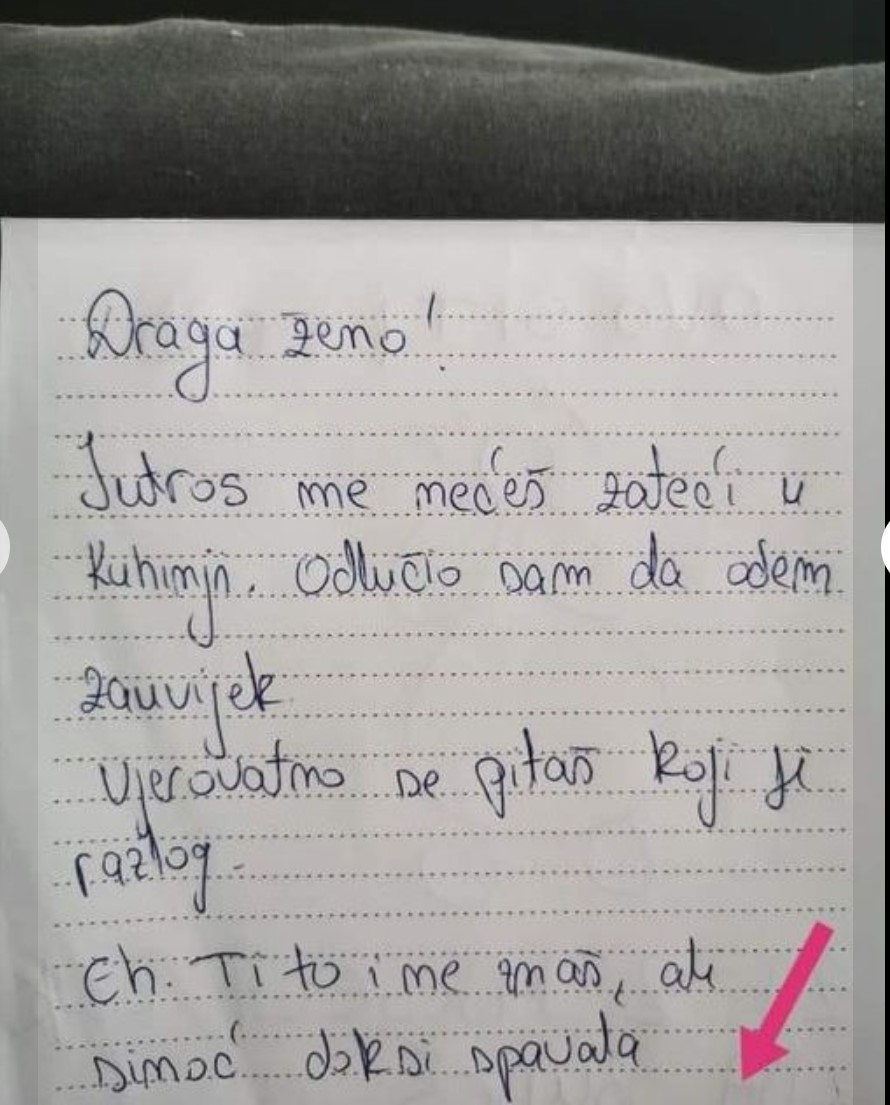 Draga ženo!
Jutros me mećeš zateći u
kuhinji. Odlučio sam da odem
zauvijek
Vjerovatno se pitaš koji je
razlog.
Eh. Ti to i me znaš, ali
simoć dok si spavala